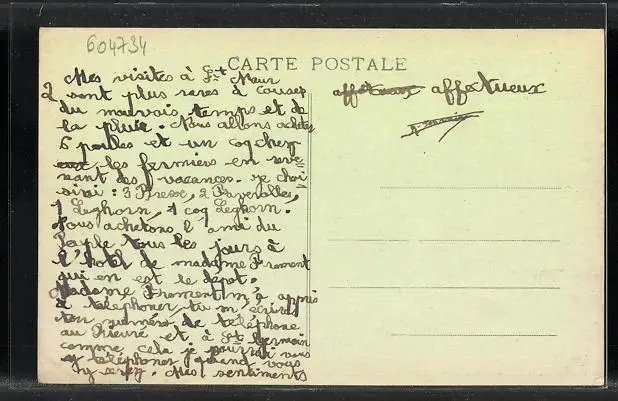 604734
CARTE POSTALE
Mes visites à St Maur
2 sont plus rares à cause
du mauvais temps et de
la pluie. Nous allons acheter
6 poules et un coq chez
les fermiers en reve-
nant des vacances. je choi-
sirai : 3 Bresse, 2 Faverolles,
1 Leghorn, 1 coq Leghorn.
Nous achetons l'ami du
Peuple tous les jours à
l'hotel de madame Froment
qui en est le depot.
Madame Froment m'a appris
à téléphoner, tu m'écriras
ton numéro de téléphone
au Prieuré et à St Germain
comme cela je pourrai vous
téléphoner quand vous
y serez. Mes sentiments
affectueux